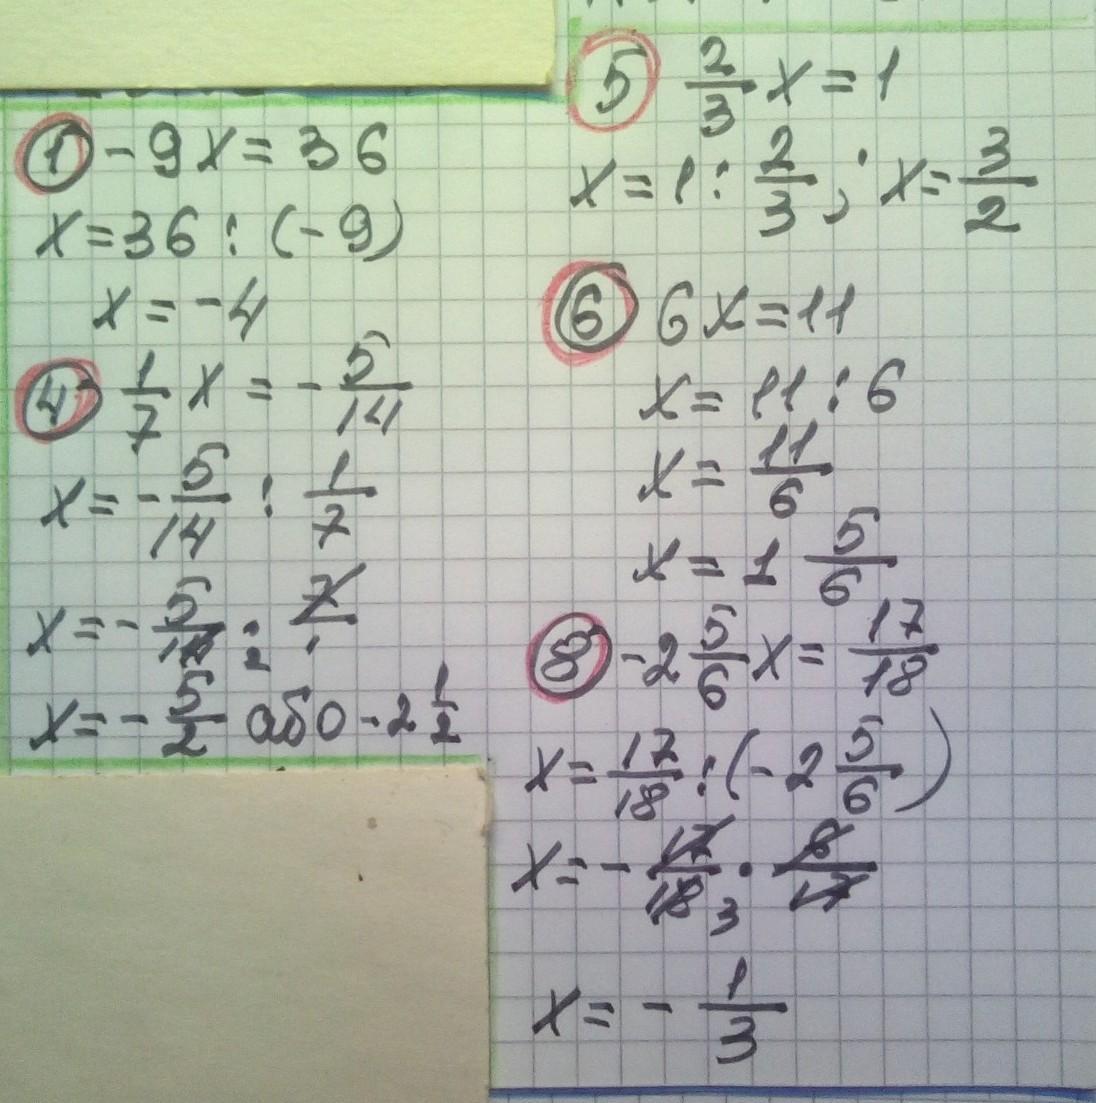 ① -9x = 36
x = 36 : (-9)
x = -4
④ 1/7 x = - 5/14
x = - 5/14 : 1/7
x = - 5/14 2 · 7/1
x = - 5/2 або -2 1/2
⑤ 2/3 x = 1
x = 1 : 2/3 ; x = 3/2
⑥ 6x = 11
x = 11 : 6
x = 11/6
x = 1 5/6
⑧ -2 5/6 x = 17/18
x = 17/18 : (-2 5/6)
x = - 17/18 3 · 6/17
x = - 1/3